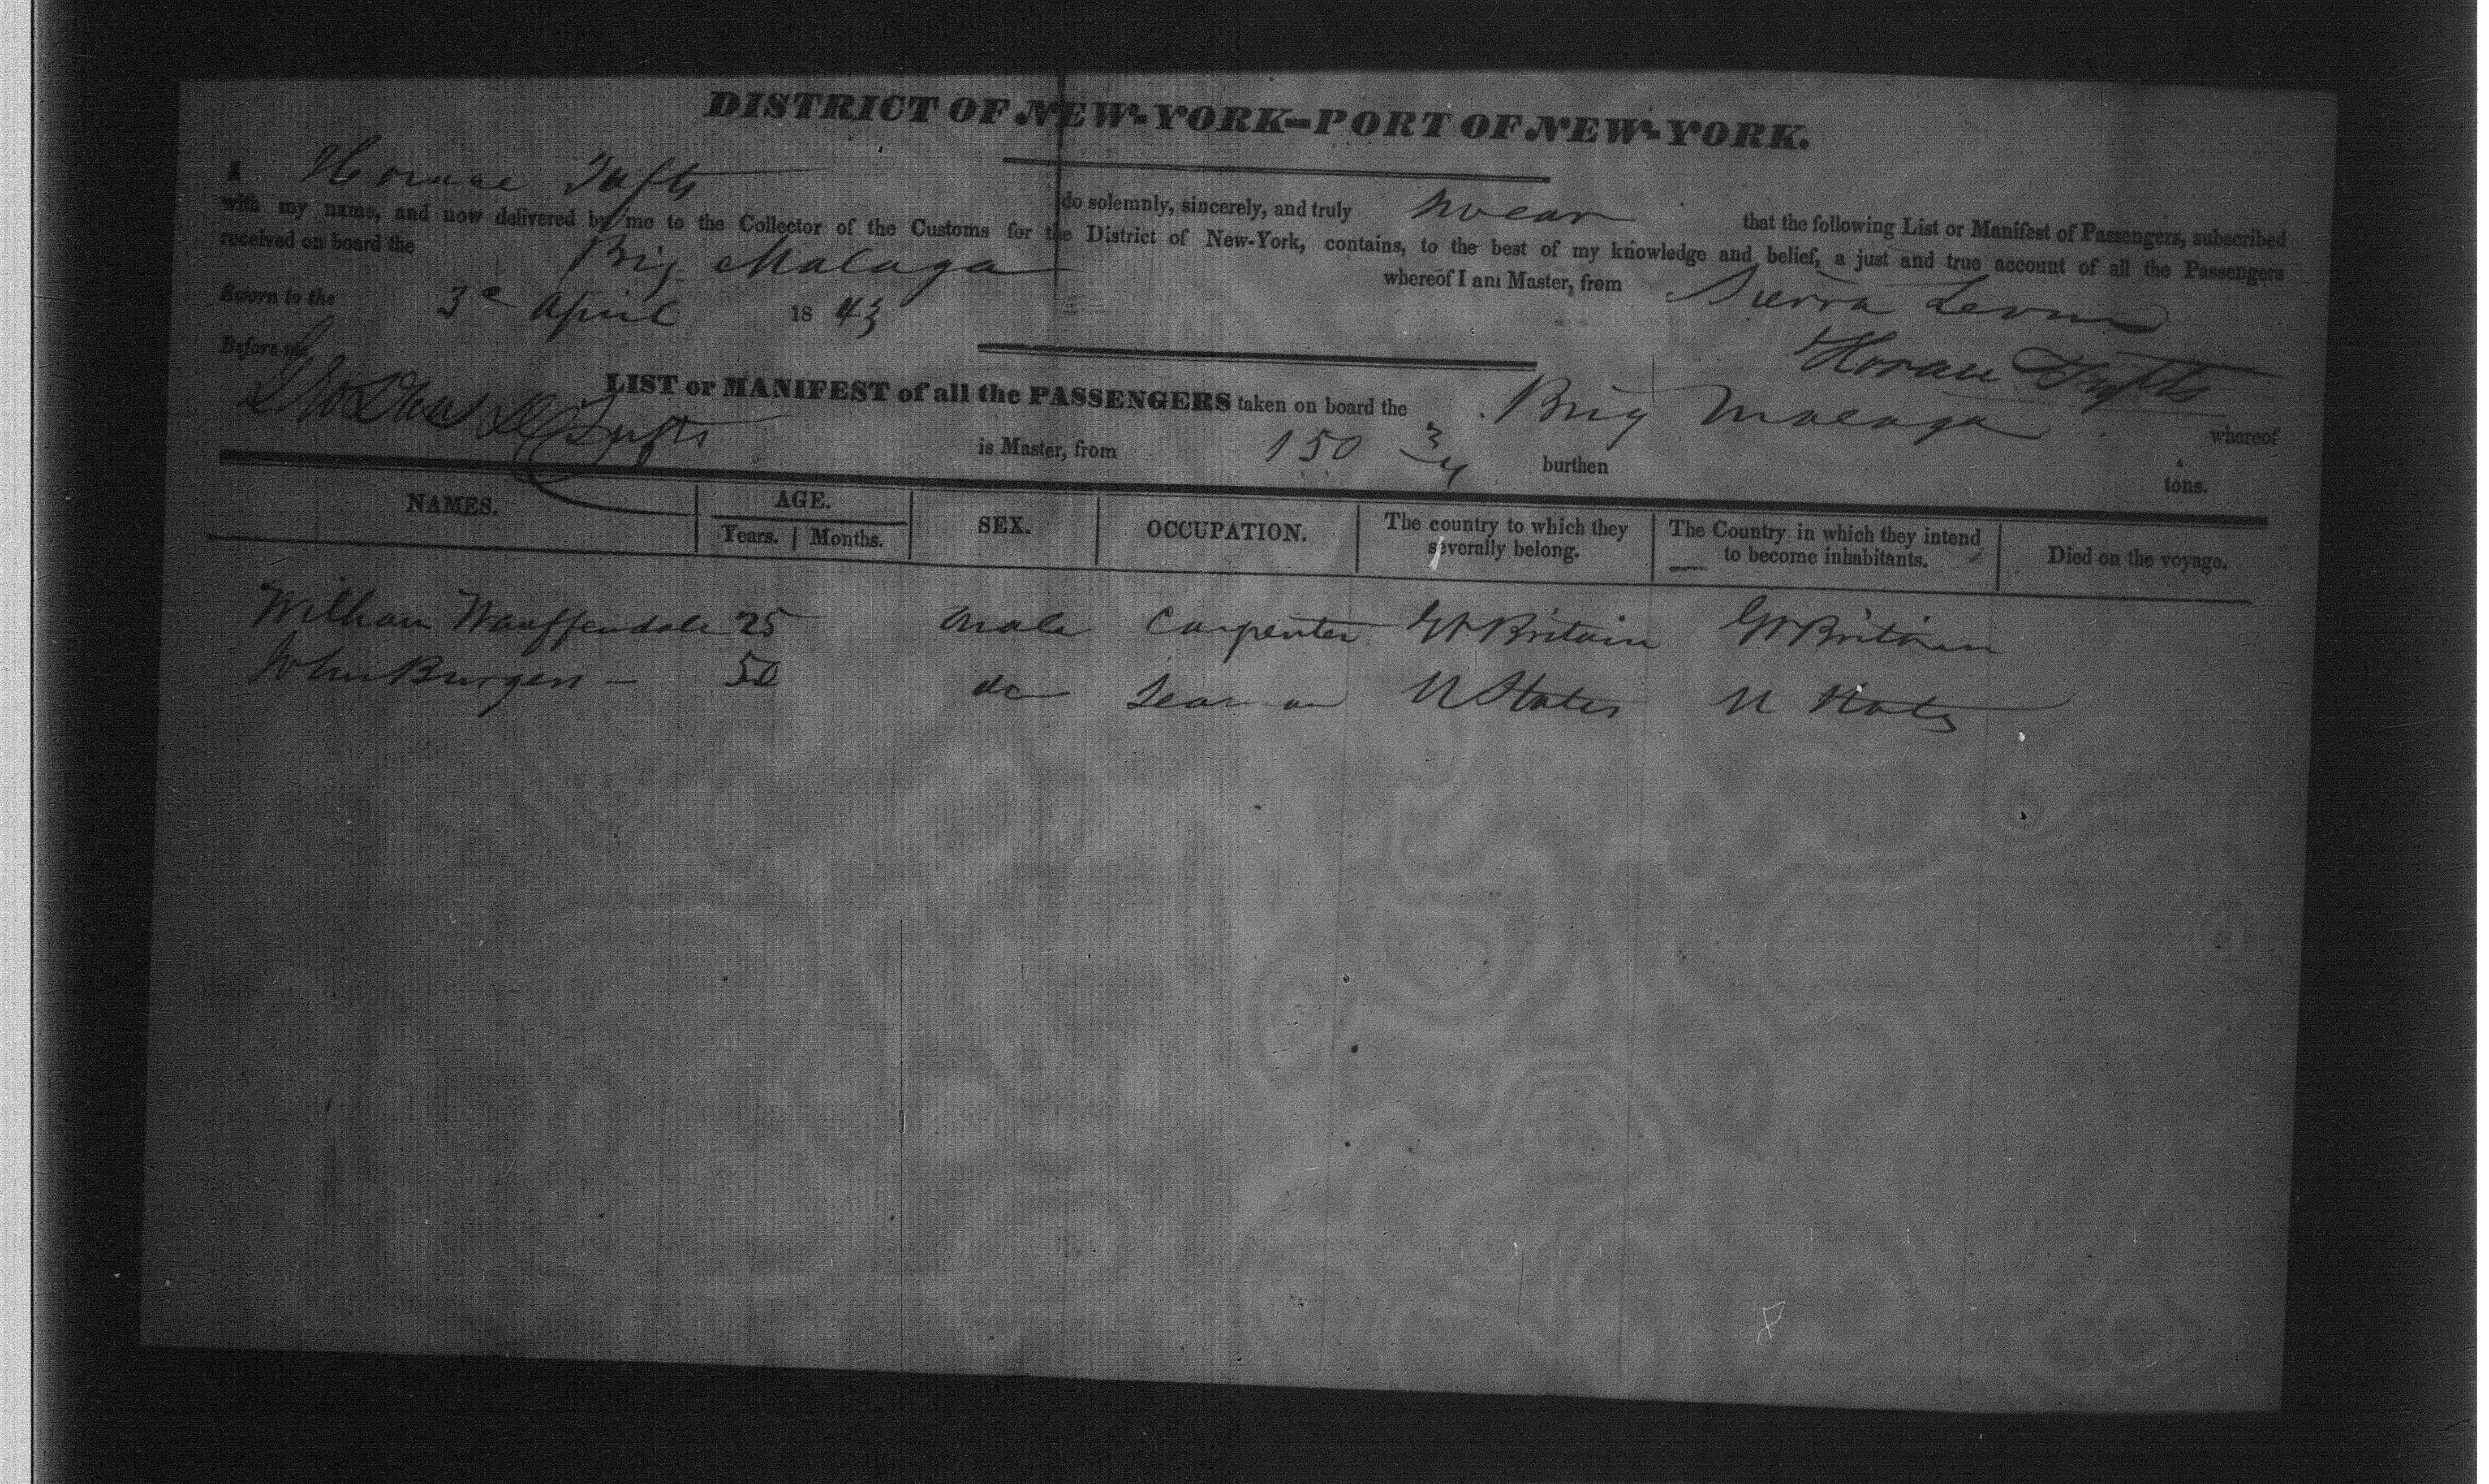 DISTRICT OF NEW-YORK—PORT OF NEW-YORK.
I Horace Tufts do solemnly, sincerely, and truly swear that the following List or Manifest of Passengers, subscribed
with my name, and now delivered by me to the Collector of the Customs for the District of New-York, contains, to the best of my knowledge and belief, a just and true account of all the Passengers
received on board the Brig Malaga whereof I am Master, from Sierra Leone
Sworn to the 3d April 1843
Horace Tufts
Before me
LIST or MANIFEST of all the PASSENGERS taken on board the Brig Malaga whereof
Tufts is Master, from 150 3/4 burthen tons.
NAMES. AGE. SEX. OCCUPATION. The country to which they severally belong. The Country in which they intend to become inhabitants. Died on the voyage.
Years. Months.
William 25 male Carpenter Gt Britain Gt Britain
John Burgess — 50 do Seaman U States U States